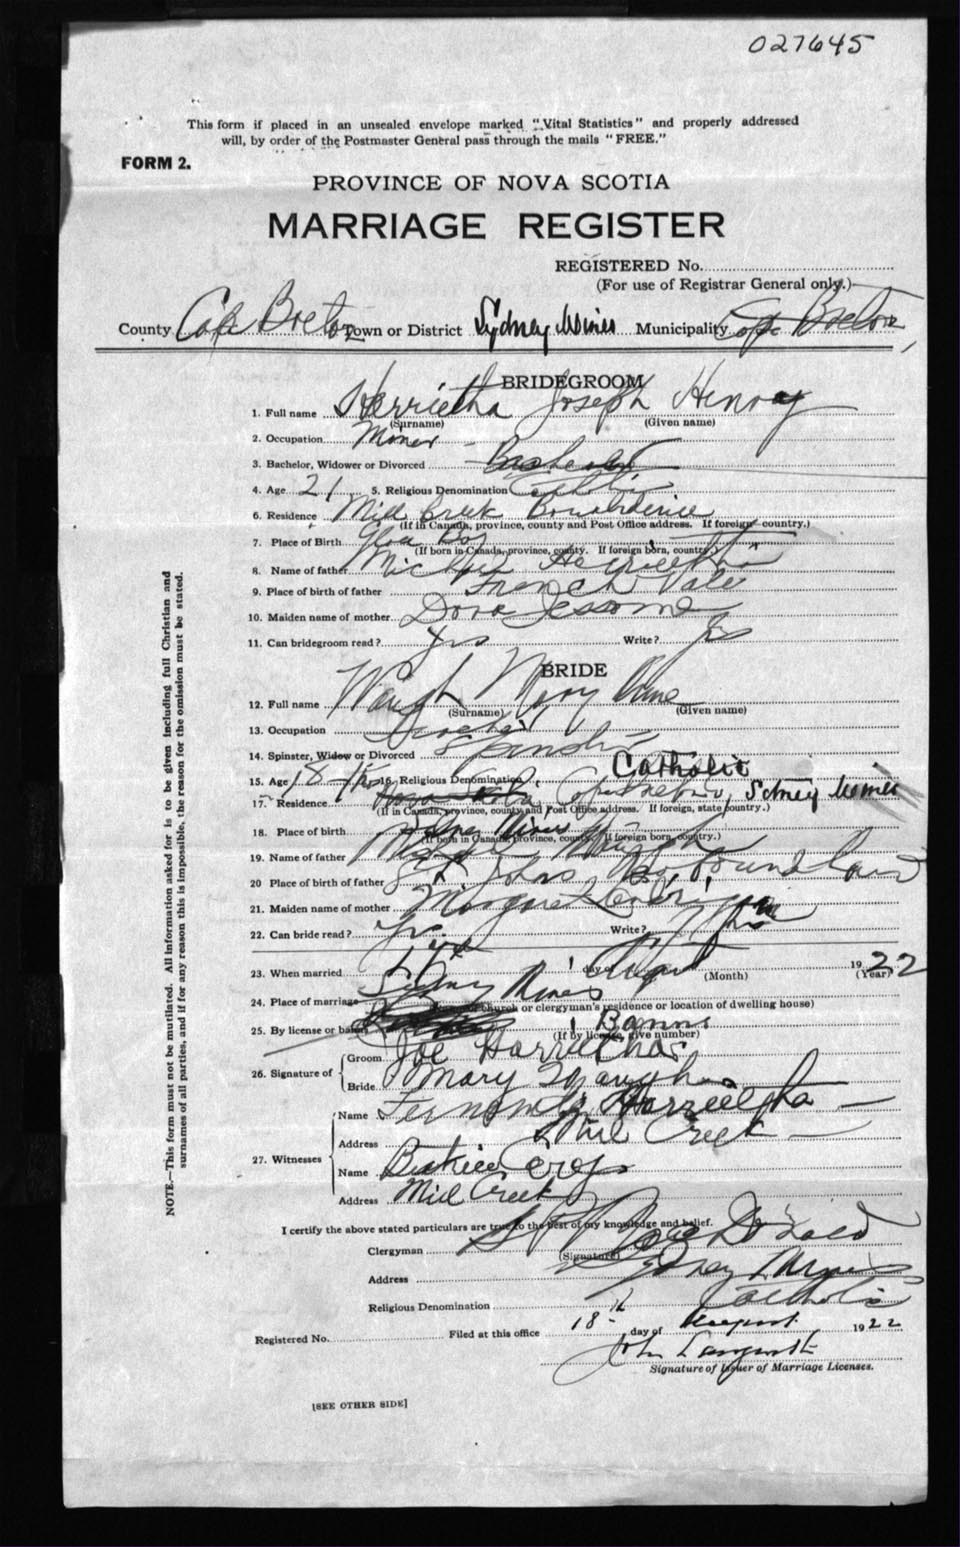 027645
This form if placed in an unsealed envelope marked "Vital Statistics" and properly addressed
will, by order of the Postmaster General pass through the mails "FREE."
FORM 2.
PROVINCE OF NOVA SCOTIA
MARRIAGE REGISTER
REGISTERED No.
(For use of Registrar General only.)
County Cape Breton Town or District Sydney Mines Municipality Cape Breton
BRIDEGROOM
1. Full name Harrietha Joseph Henry
(Surname) (Given name)
2. Occupation Miner
3. Bachelor, Widower or Divorced Bachelor
4. Age 21 5. Religious Denomination Catholic
6. Residence Mill Creek
(If in Canada, province, county and Post Office address. If foreign country.)
7. Place of Birth
(If born in Canada, province, county. If foreign born, country.)
8. Name of father Harrietha
9. Place of birth of father French Vale
10. Maiden name of mother Dora Jessome
11. Can bridegroom read? Yes Write? Yes
BRIDE
12. Full name Waugh Mary Anne
(Surname) (Given name)
13. Occupation
14. Spinster, Widow or Divorced Spinster
15. Age 18 16. Religious Denomination Catholic
17. Residence Sidney Mines
(If in Canada, province, county and Post Office address. If foreign, state country.)
18. Place of birth Sidney Mines
(If born in Canada, province, county. If foreign born, country.)
19. Name of father Waugh
20 Place of birth of father St Johns Newfoundland
21. Maiden name of mother Margaret
22. Can bride read? Yes Write? Yes
23. When married day of August (Month) 1922 (Year)
24. Place of marriage Sydney Mines
church or clergyman's residence or location of dwelling house)
25. By license or banns Banns
(If by license, give number)
26. Signature of
Groom Joe Harriethas
Bride Mary Waugh
27. Witnesses
Name Harrietha
Address Mill Creek
Name Beatrice
Address Mill Creek
I certify the above stated particulars are true to the best of my knowledge and belief.
Clergyman
(Signature)
Address Sydney Mines
Religious Denomination Catholic
Registered No. Filed at this office 18th day of August 1922
John
Signature of Issuer of Marriage Licenses.
[SEE OTHER SIDE]
NOTE.—This form must not be mutilated. All information asked for is to be given including full Christian and
surnames of all parties, and if for any reason this is impossible, the reason for the omission must be stated.